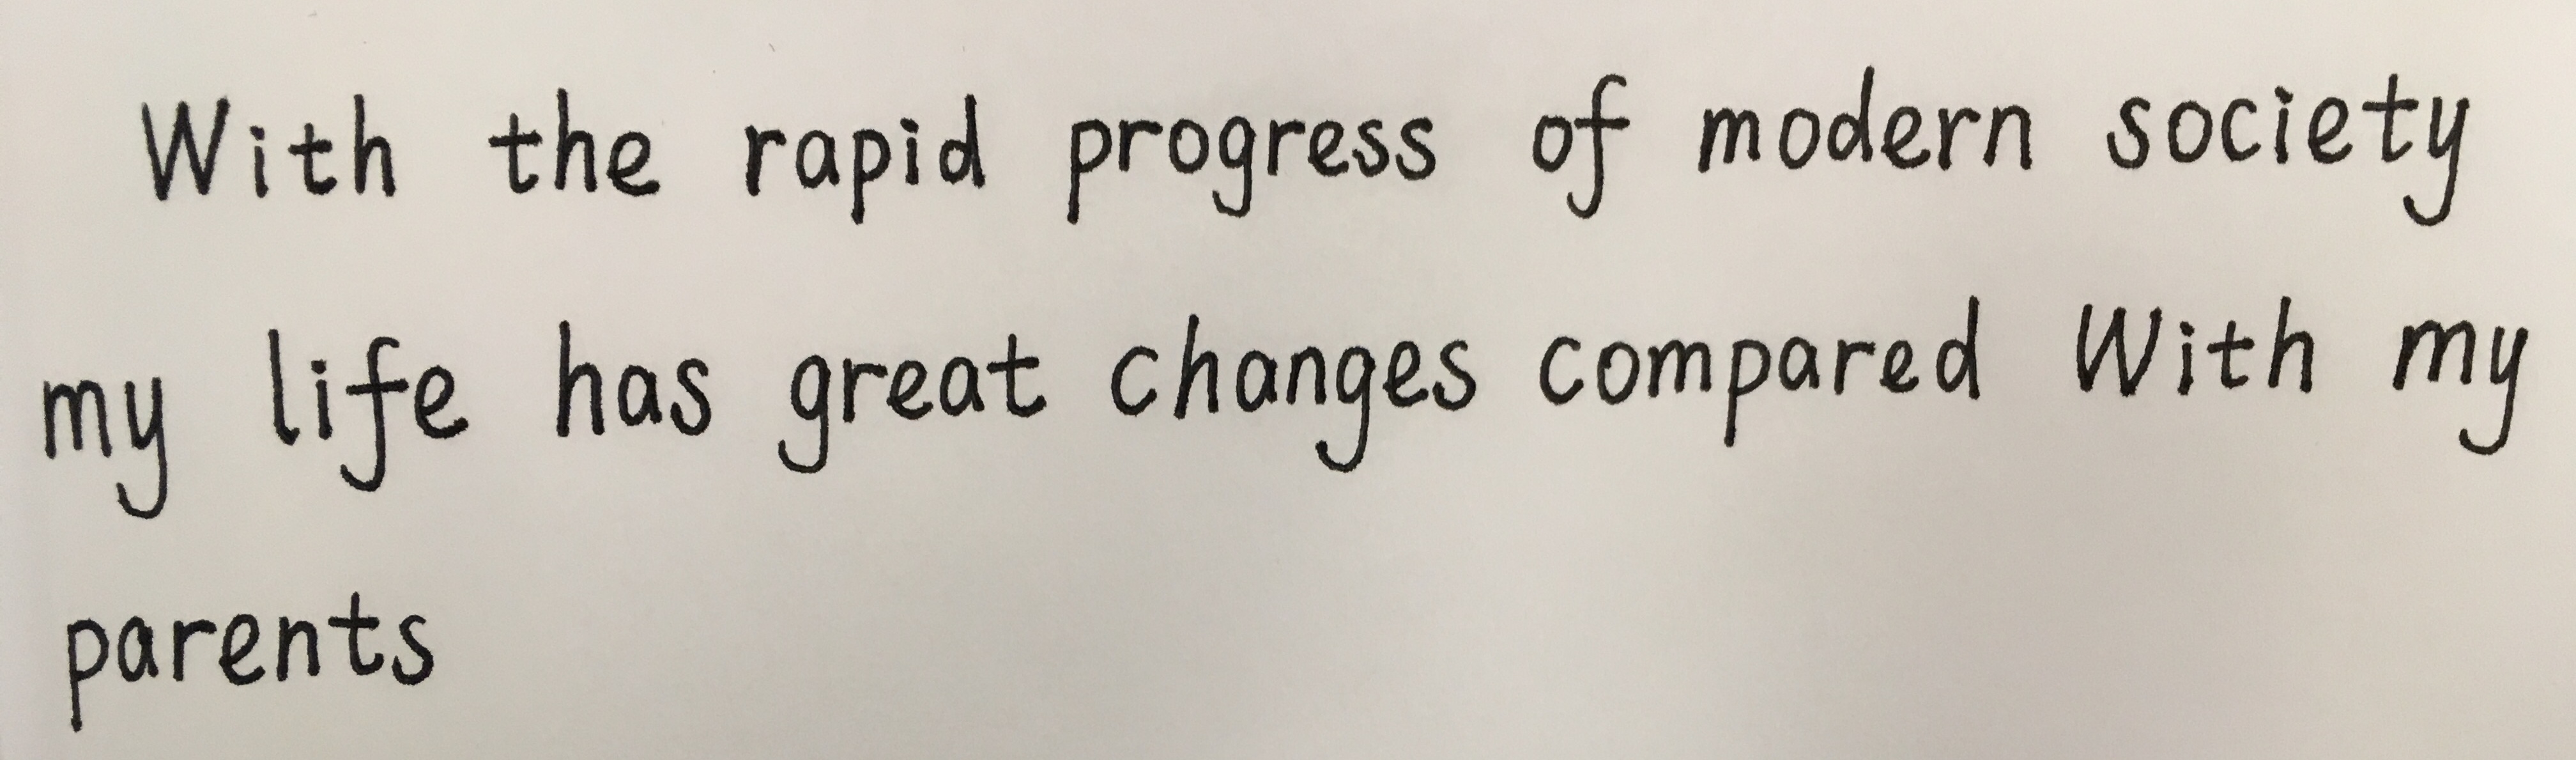 With the rapid progress of modern society
my life has great changes compared With my
parents